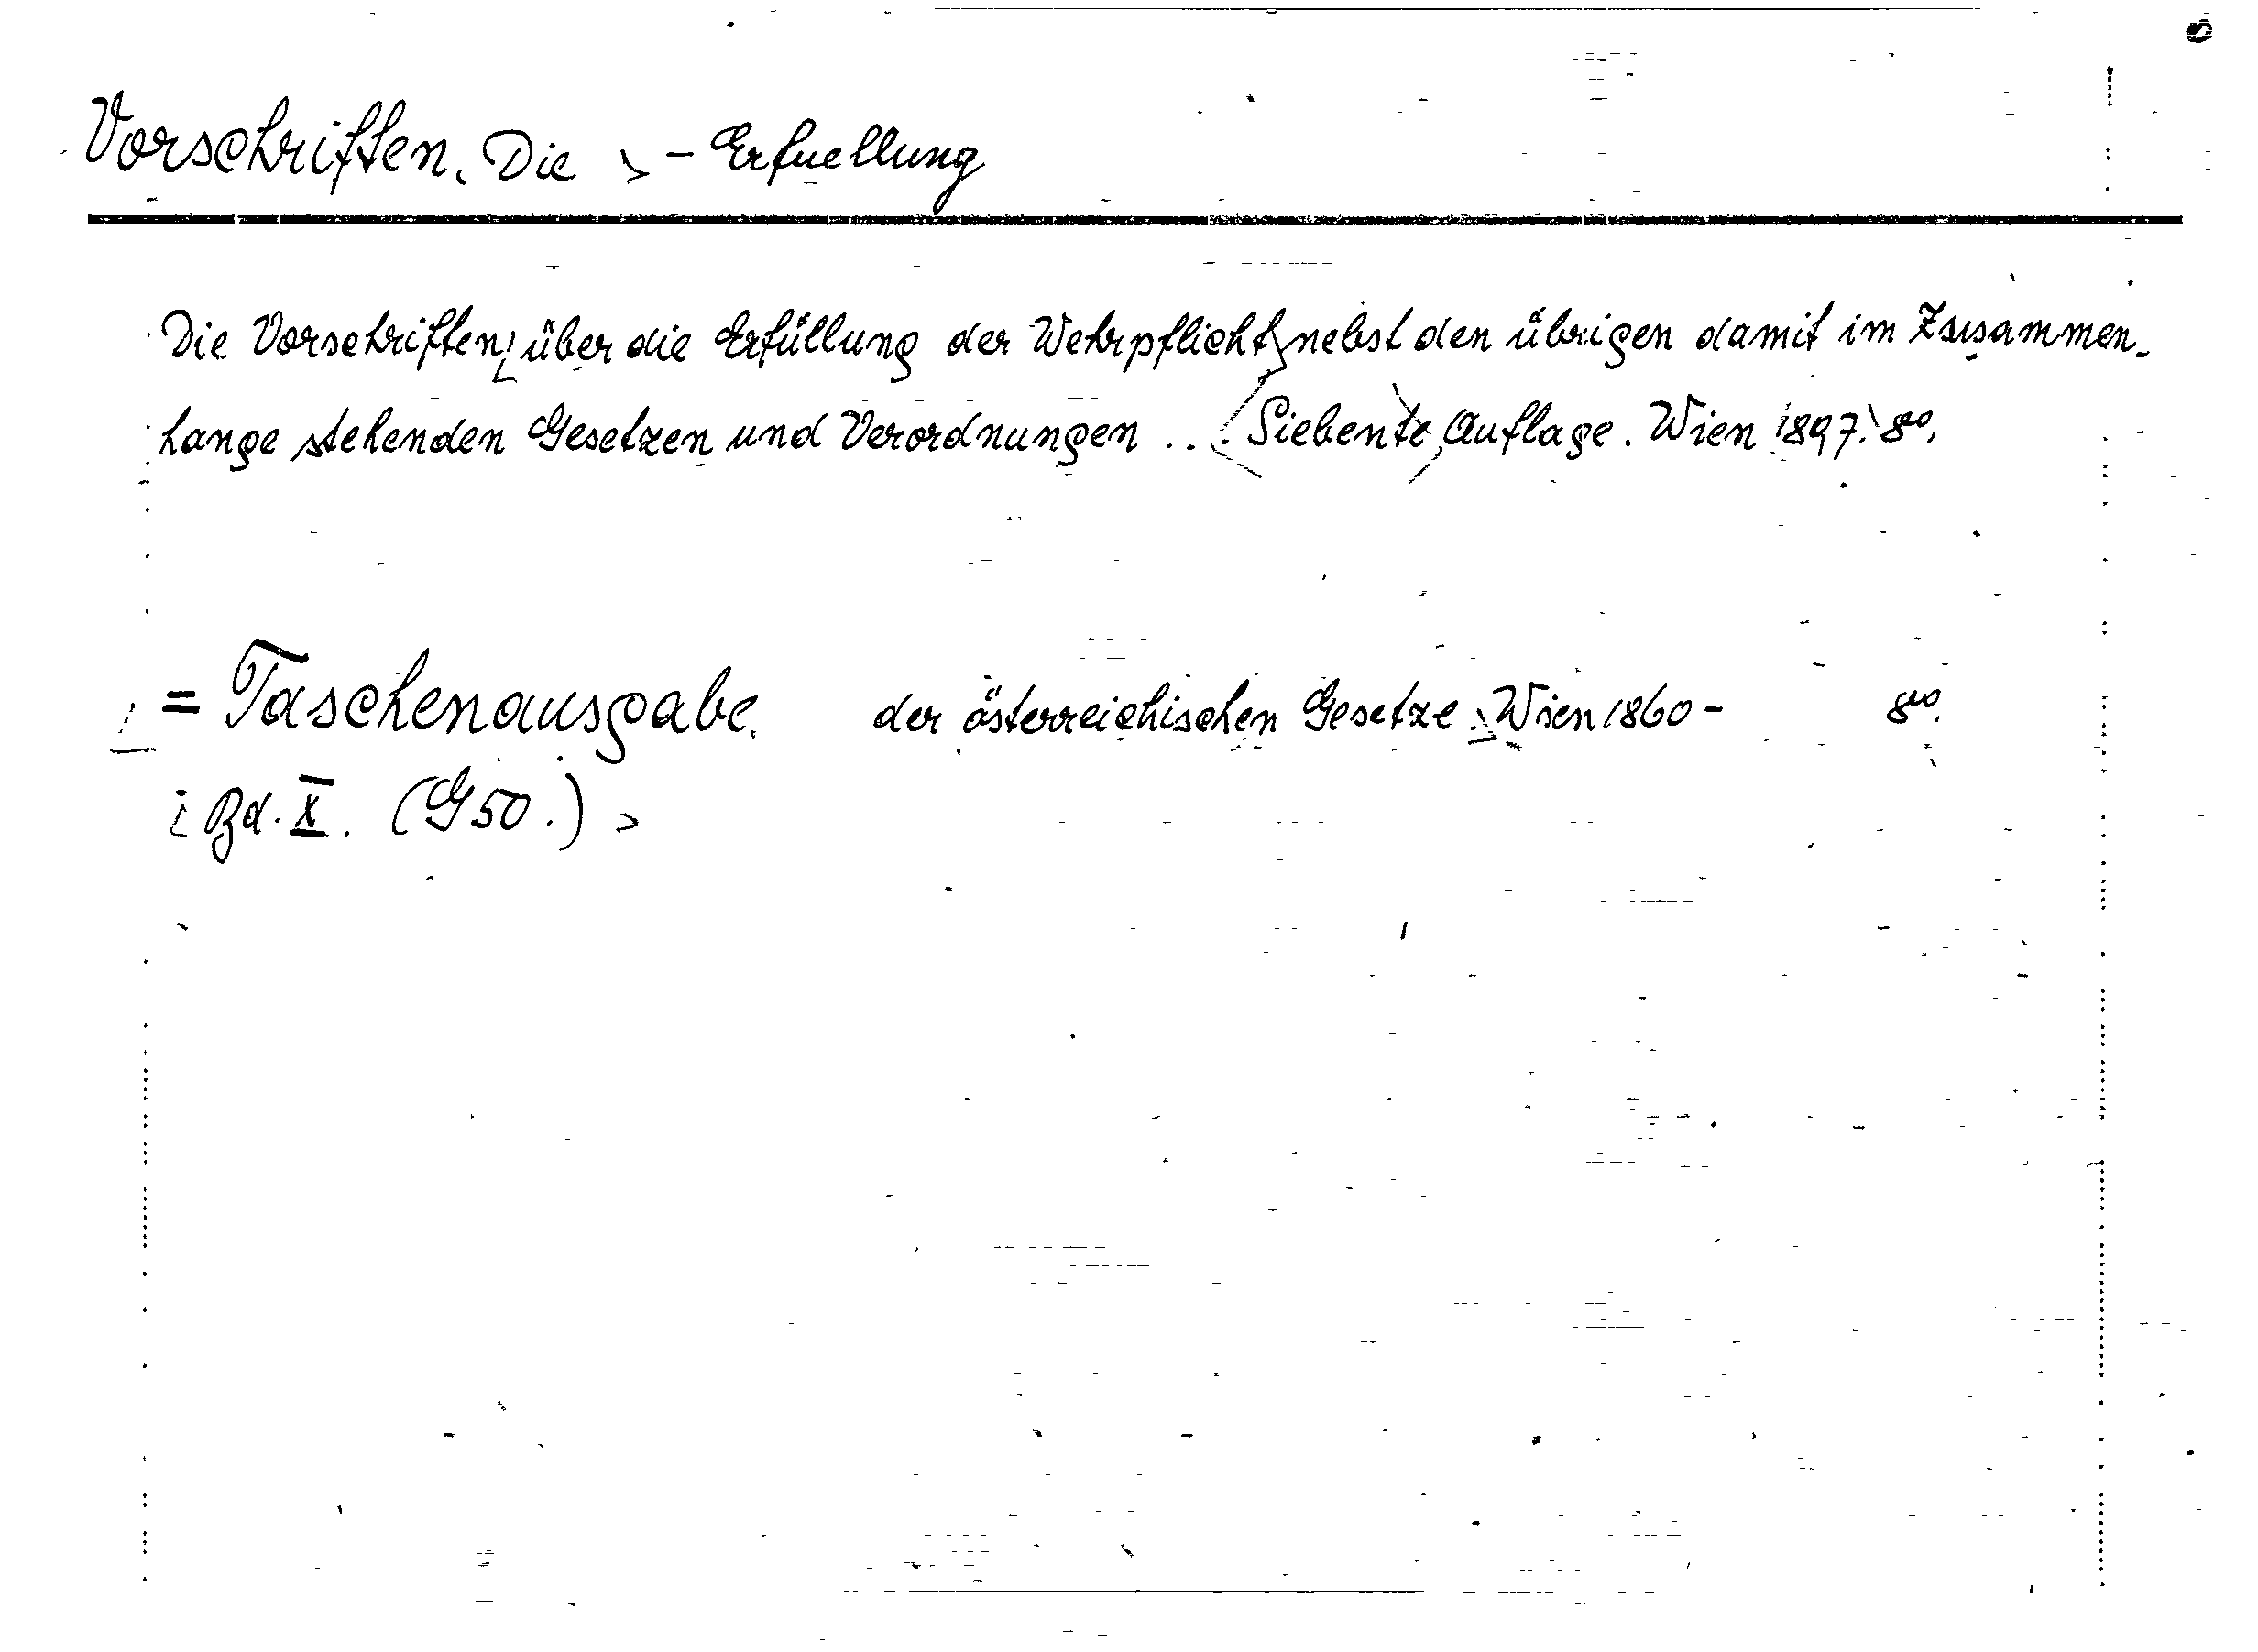 Vorschriften, Die > - Erfuellung
Die Vorschriften über die Erfüllung der Wehrpflicht nebst den übrigen damit im Zusammen-
hange stehenden Gesetzen und Verordnungen ... Siebente Auflage. Wien 1897. 8°.
= Taschenausgabe der österreichischen Gesetze. Wien 1860 - 8°.
Bd. X. (G50.) >